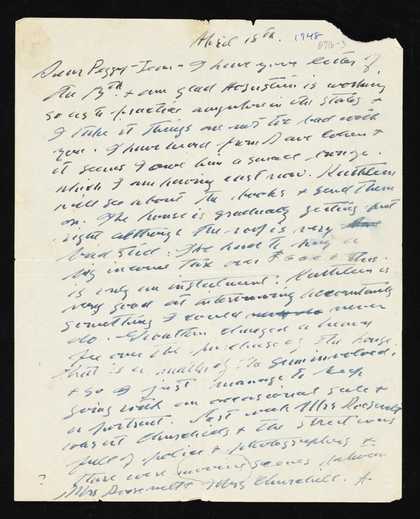 April 18th. 1948
Dear Peggy-Jean - I have your letter of
the 13th. & am glad Augustin is working
so as to practice anywhere in the States &
I take it things are not too bad with
you. I have heard from Dave
it seems I owe him a
which I am having cast now. Kathleen
will see about the books & send them
on. The house is gradually getting put
right although the roof is very
bad still. I've had to pay a
big income tax over & this
is only an instalment! Kathleen is
very good at interviewing accountants
something I could never
do. charged a heavy
fee over the purchase of the house
that is a matter of the
& so I just manage to keep
going with an occasional sale &
a portrait. Last week Mrs Roosevelt
Churchill's & the street was
full of police & photographers &
there were moving scenes between
? Mrs Roosevelt & Mrs Churchill. A